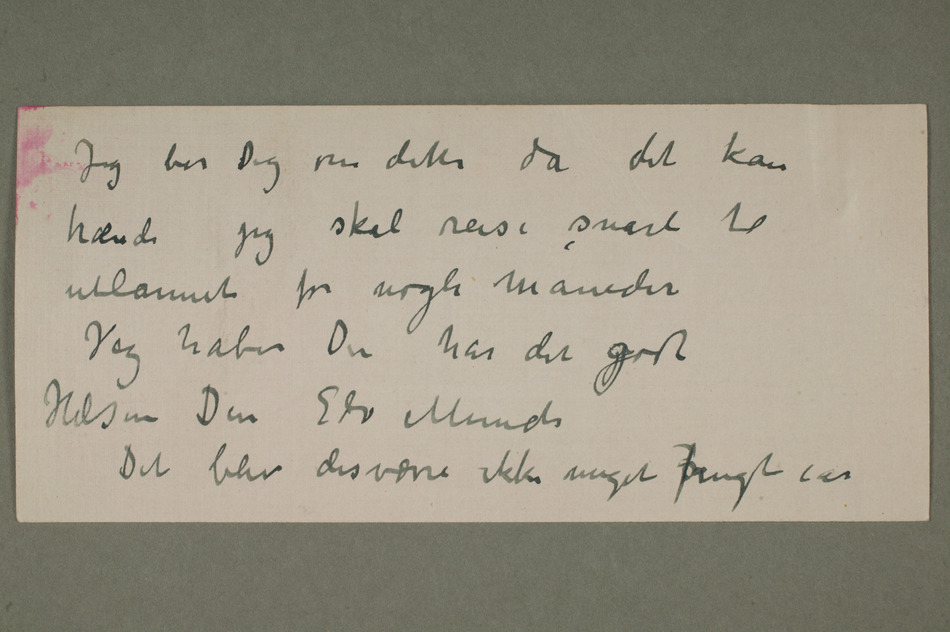 Jeg ber Dig om dette da det kan
hænde jeg skal reise snart til
utlannet for nogle måneder
Jeg håber Du har det godt
Hilsen Din Edv Munch
Det blev desværre ikke meget frugt iår